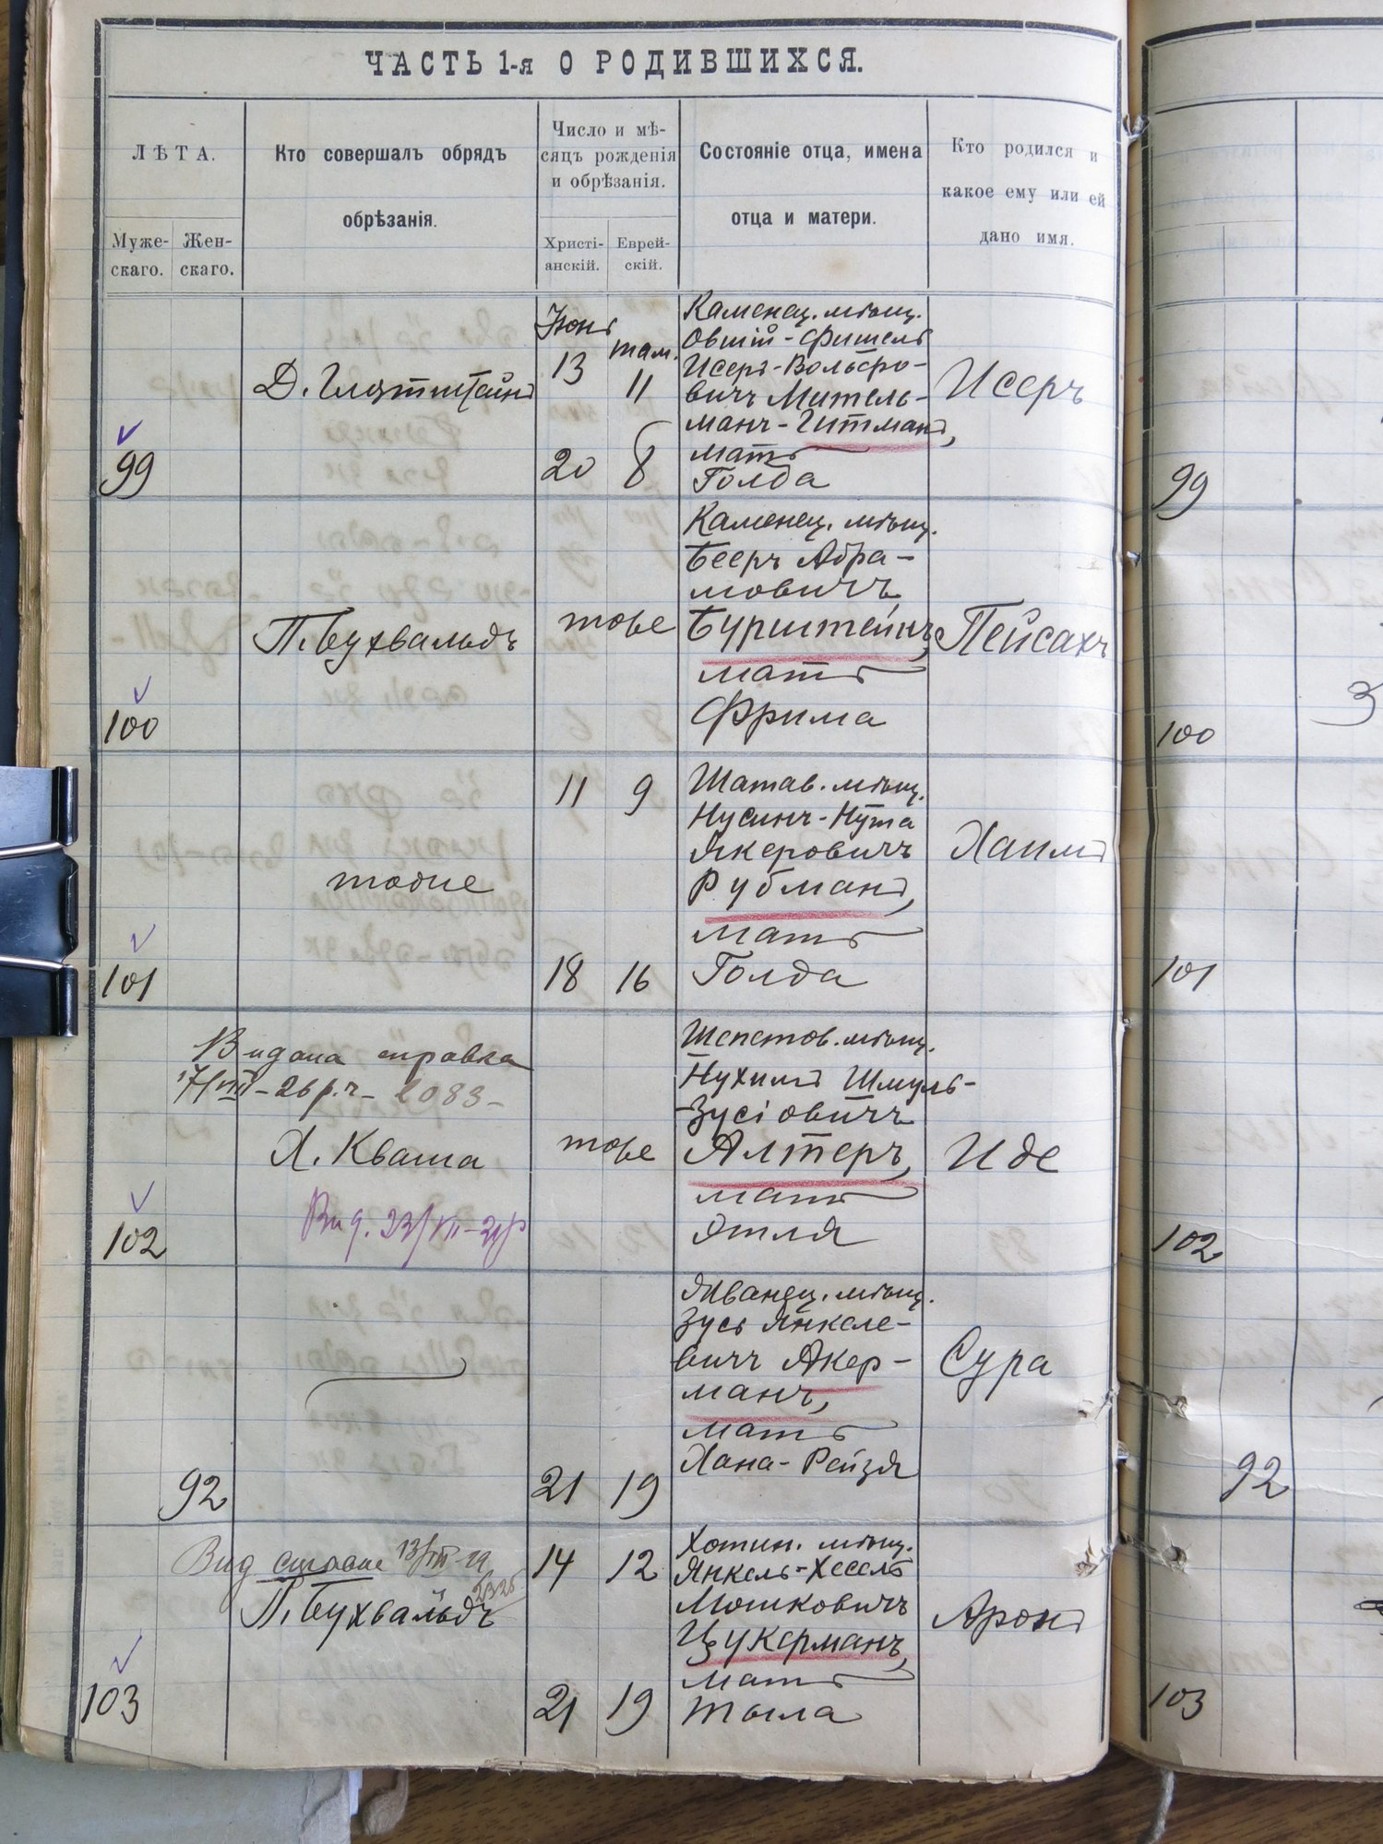 ЧАСТЬ 1-я О РОДИВШИХСЯ.
ЛѢТА.
Муже-
скаго.
Жен-
скаго.
Кто совершалъ обрядъ
обрѣзанія.
Число и мѣ-
сяцъ рожденія
и обрѣзанія.
Христі-
анскій.
Еврей-
скій.
Состояніе отца, имена
отца и матери.
Кто родился и
какое ему или ей
дано имя.
99
Июнь
13
20
там.
11
Каменец. мѣщ.
Овшій-Фишель
Исеръ-Вольфо-
вичъ Митель-
манъ-Гитманъ,
мать
Голда
Исеръ
99
100
П. Бухвальдъ
тоже
Каменец. мѣщ.
Бееръ Абра-
мовичъ
Бурштейнъ,
мать
Фрима
Пейсахъ
3
100
101
тоже
11 9
18 16
Шатав. мѣщ.
Нусинъ-Нута
Якеровичъ
Рубманъ,
мать
Голда
Хаимъ
101
102
Видана справка
17/VIII-26 р. ч- 2083-
Х. Кваша
Вид. 23/VII-31р
тоже
Шепетов. мѣщ.
Нухимъ Шмуль-
-Зусіовичъ
Алтеръ,
мать
Этля
Иде
102
92
21 19
Жванец. мѣщ.
Зусь Янкеле-
вичъ Акер-
манъ,
мать
Хана-Рейзя
Сура
92
103
Вид справк 13/VIII-29
2325
П. Бухвальдъ
14 12
21 19
Хотин. мѣщ.
Янкель-Хесель
Мошковичъ
Цукерманъ,
мать
Тыла
Аронъ
103